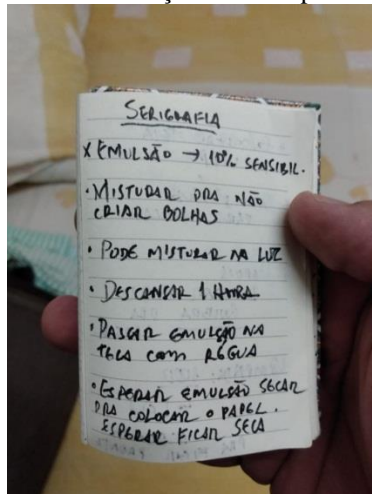 SERIGRAFIA
X EMULSÃO → 10% SENSIBIL.
• MISTURAR PRA NÃO
CRIAR BOLHAS
• PODE MISTURAR NA LUZ
• DESCANSAR 1 HORA
• PASSAR EMULSÃO NA
TELA COM RÉGUA
• ESPERAR EMULSÃO SECAR
PRA COLOCAR O PAPEL.
ESPERAR FICAR SECA